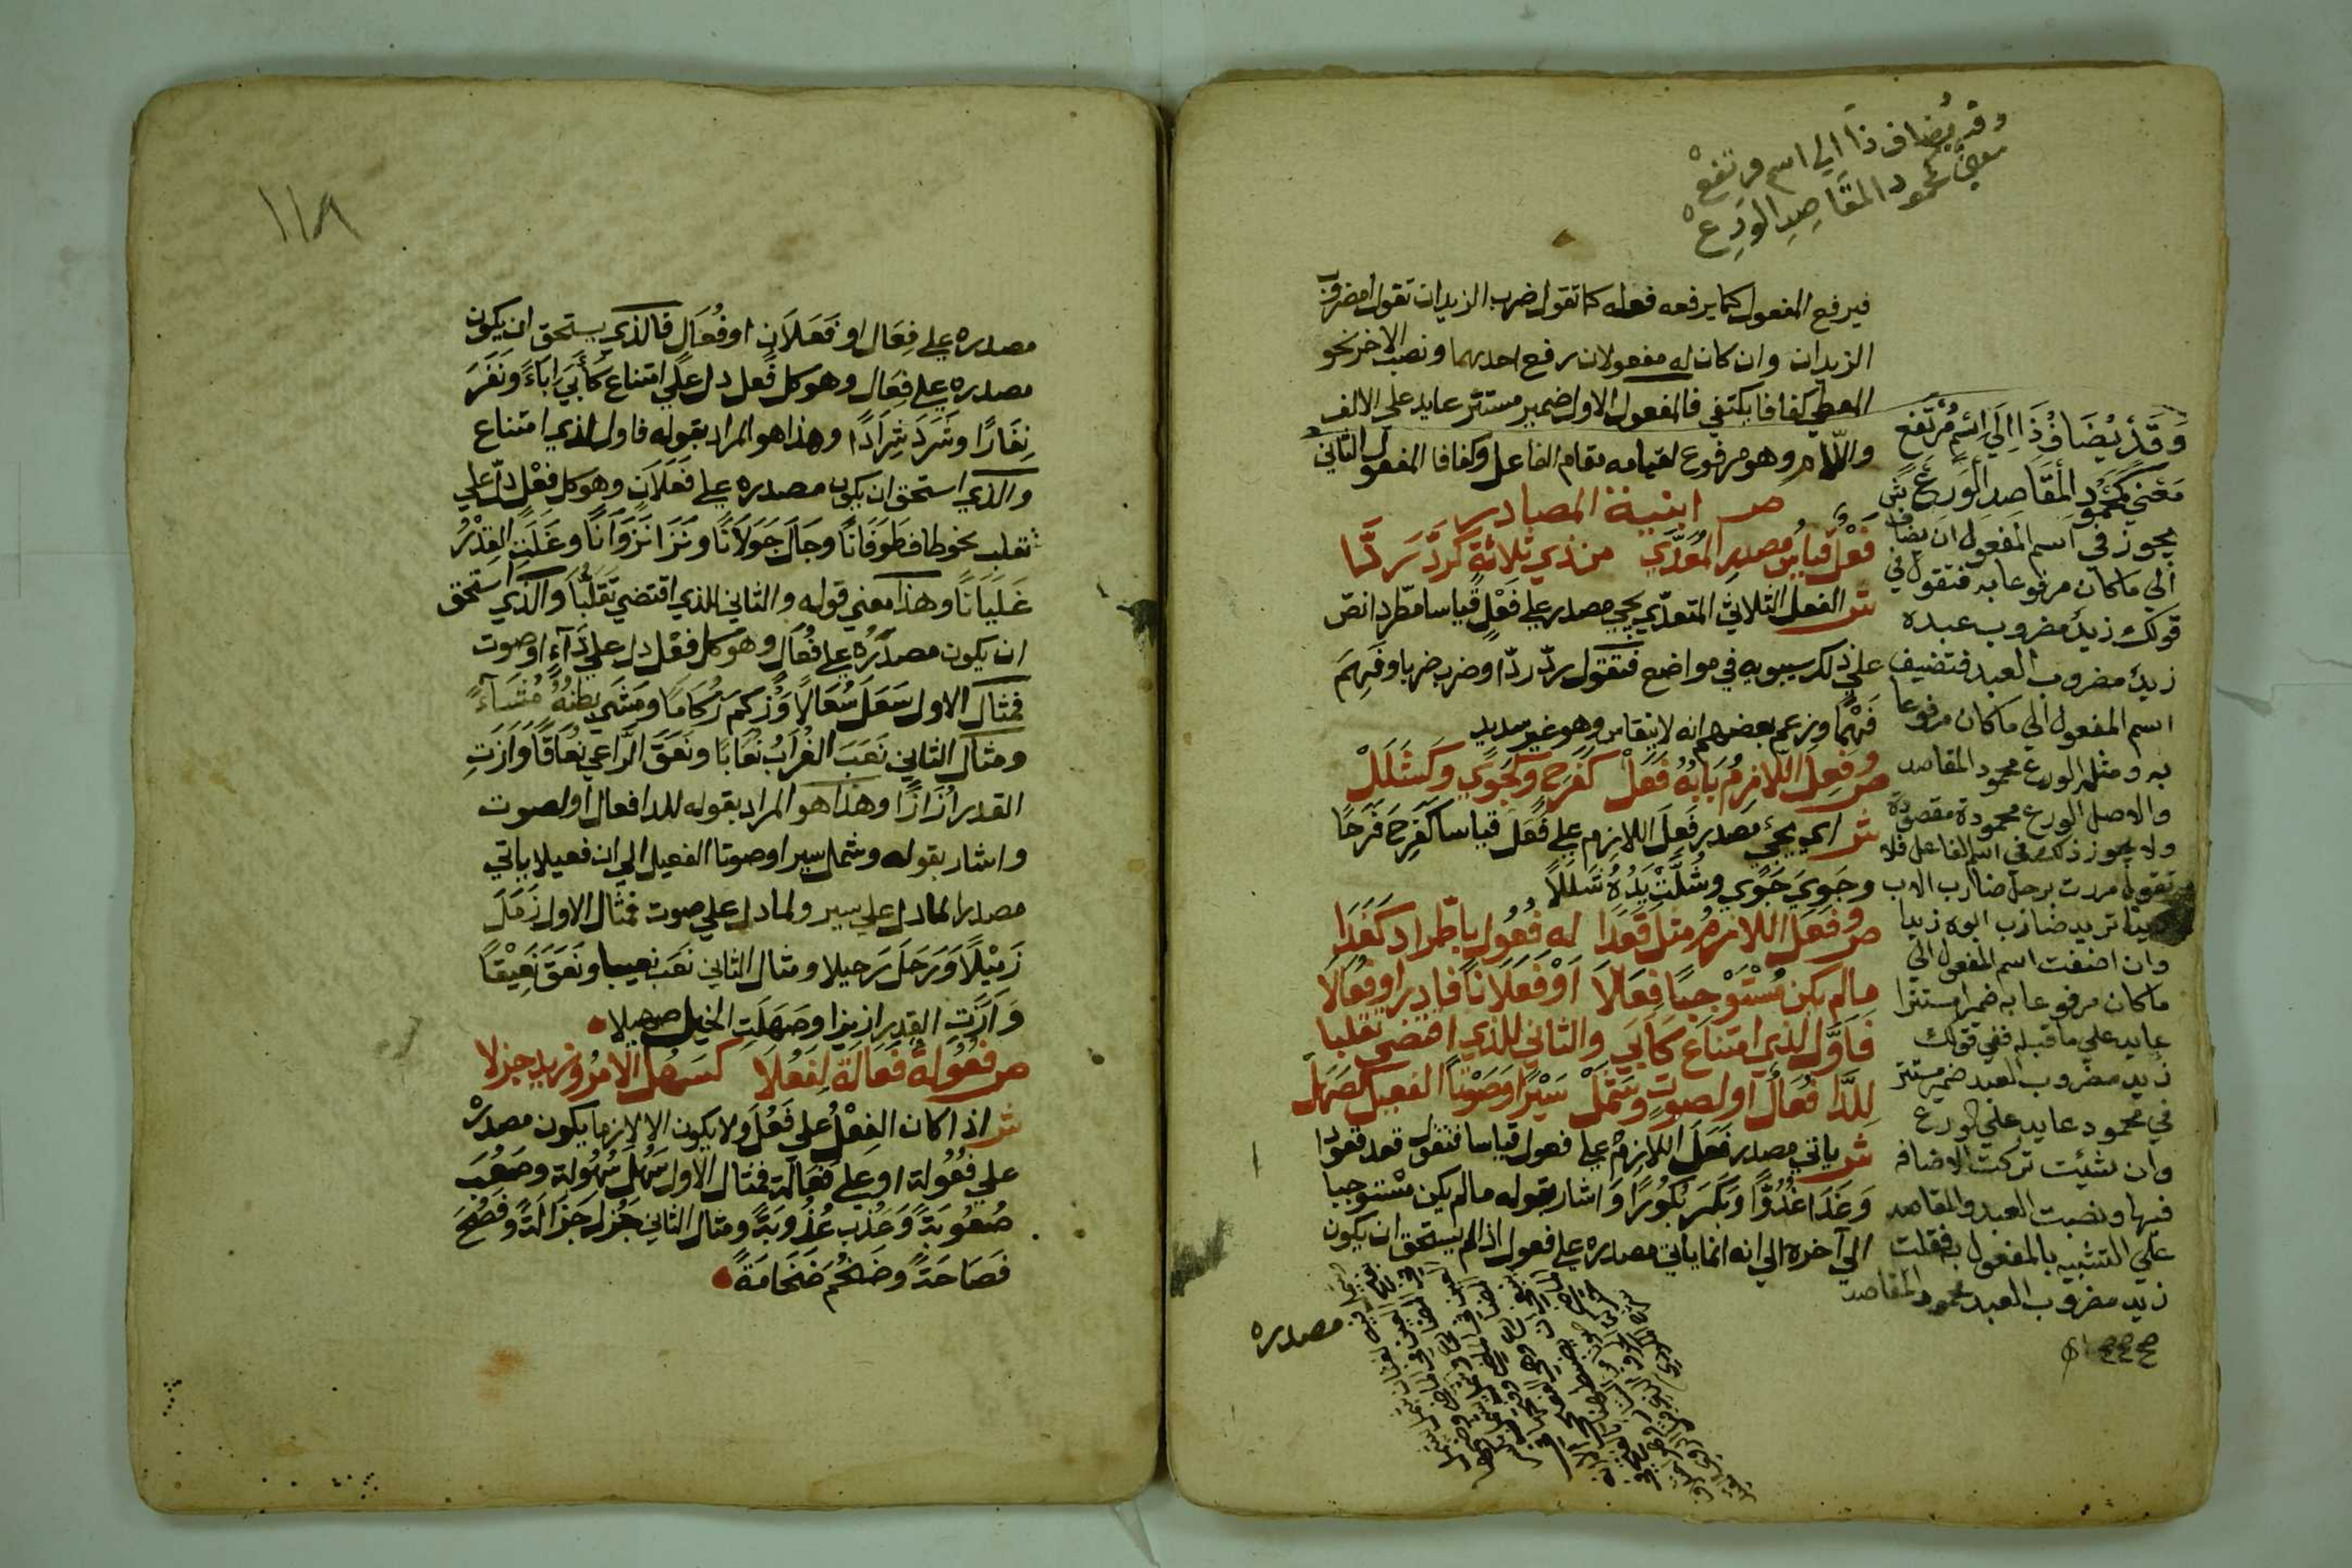 وقد يُضاف ذا الي اسم مرتفعْ
معنيً كمحمود المقَاصِدِ الوَرِعْ
فيرفع المفعول كما يرفعه فعله كما تقول ضرب الزيدان تقول امضروب
الزيدان وان كان له مفعولان رفع احدهما ونصب الاخر نحو
المعطي كفافا يكتفي فالمفعول الاول ضمير مستتر عايد علي الالف
واللام وهو مرفوع لقيامه مقام الفاعل وكفافا المفعول الثاني
ص ابنية المصادر
فَعْلٌ قياسُ مصدرِ المُعَدَّي من ذي ثلاثةٍ كَرَدَّ رَدَّا
ش الفعل الثلاثي المتعدّي يجي مصدره علي فَعْلٍ قياسا مطّردا نصّ
علي ذلك سيبويه في مواضع فتقول ردّ ردّا وضرب ضربا وفَهِمَ
فَهْمًا وزعم بعضهم انه لا ينقاس وهو غير سديد
ص وفَعِلَ اللازمُ بَابُهُ فَعَلْ كفَرَحٍ وكجَوًي وكشَلَلْ
ش اي يجيء مصدر فَعِلَ اللازم علي فَعَلٍ قياسا كفَرِحَ فَرَحًا
وجَوِيَ جَوًي وشُلَّتْ يَدُهُ شَلَلاً
ص وفَعَلَ اللازمُ مثل قَعَدَا له فُعُول باطّراد كغَدَا
مالم يكن مُسْتَوْجِبًا فِعَالَا اَوْ فَعَلَانًا فادرِ او فُعَالَا
فَاَوَّل لذي امتناع كَاَبَي والثاني للذي اقتضي تقلبا
لِلدَّا فُعَالٌ او لصوتٍ وشَمَلْ سَيْرًا وصَوْتًا الفعيل كصَهَلْ
ش ياتي مصدر فَعَلَ اللازمُ علي فعول قياسا فتقول قعد قعودا
وَغَدَا غُدُوًّا وَبَكَرَ بُكُورًا وَاشار بقوله مالم يكن مستوجبا
الي آخره الي انه انما ياتي مصدره علي فعول اذا لم يستحق ان يكون
مصدره
وَقَدْ يُضَافُ ذَا اِلَي اسْمٍ مُرْتَفع
مَعْنيً كمَحْمُودِ الْمَقَاصِدِ الْوَرِعْ ش
يجوز في اسم المفعول ان يضاف
الي ما كان مرفوعا به فتقول في
قولك زيدٌ مضروب عبده
زيدٌ مضروب العبد فتضيف
اسم المفعول الي ما كان مرفوعا
به ومثله الورع محمود المقاصد
والاصل الورع محمودة مقصودة
ولا يجوز ذلك في اسم الفاعل فلا
تقول مررت برجل ضارب الاب
زيدا تريد ضارب ابوه زيدا
وان اضفت اسم المفعول الي
ما كان مرفوعا به ضمرا مستترا
عايد علي ما قبله ففي قولك
زيد مضروب العبد ضمير مستتر
في محمود عايد علي الورع
وان شئت تركت الاضافه
فيها ونصبت العبد والمقاصد
علي التشبيه بالمفعول به فقلت
زيد مضروب العبد محمود المقاصد
١١٨
مصدره علي فِعَال او فَعَلَان او فُعَال فالذي يستحق ان يكون
مصدره علي فِعَال وهو كل فعل دل علي امتناع كأَبَي اِبَاءً ونَفَرَ
نِفَارًا وشَرَدَ شِرَادًا وهذا هو المراد بقوله فاول لذي امتناع
والذي استحق ان يكون مصدره علي فَعَلَان وهو كل فِعْل دلّ علي
تقلب نحو طاف طَوَفَانًا وجَالَ جَوَلَانًا ونَزَا نَزَوَانًا وغَلَتِ القِدْرُ
غَلَيَانًا وهذا معني قوله والثاني للذي اقتضي تَقَلُّبًا والذي استحق
ان يكون مصدَرُه علي فُعَال وهو كل فِعْل دل علي دَآءٍ او صوت
فمثال الاول سَعَلَ سُعَالًا وَزُكِمَ زُكَامًا ومَشَي بطنُهُ مُشَآءً
ومثال الثاني نَعَبَ الغُرَابُ نُعَابًا ونَعَقَ الرَّاعي نُعَاقًا وَازَتِ
القدر اُزَازًا وهذا هو المراد بقوله للدا فعال او لصوت
واشار بقوله وشمل سيرا وصوتا الفعيل الي ان فعيلا ياتي
مصدرا لما دل علي سير ولما دل علي صوت فمثال الاول ذَمَلَ
ذَمِيْلًا وَرَحَلَ رَحيلا ومثال الثاني نَعَبَ نعيبا ونَعَقَ نَعِيْقًا
وَاَزَّتِ القِدر ازيزا وصَهَلَتِ الخيل صهيلا
ص فُعُولةٌ فَعَالَةٌ لِفَعُلَا كسَهُلَ الْاَمْرُ وزيد جزلا
ش اذا كان الفِعْلُ علي فَعُلَ ولا يكون الا لازما يكون مصدرُه
علي فُعُولة او علي فَعَالَة فمثال الاول سَهُلَ سُهُولة وصَعُبَ
صُعُوبَةً وَعَذُبَ عُذُوبَةً ومثال الثاني جَزُلَ جَزَالَةً وفَصُحَ
فَصَاحَةً وضَخُمَ ضَخَامَةً